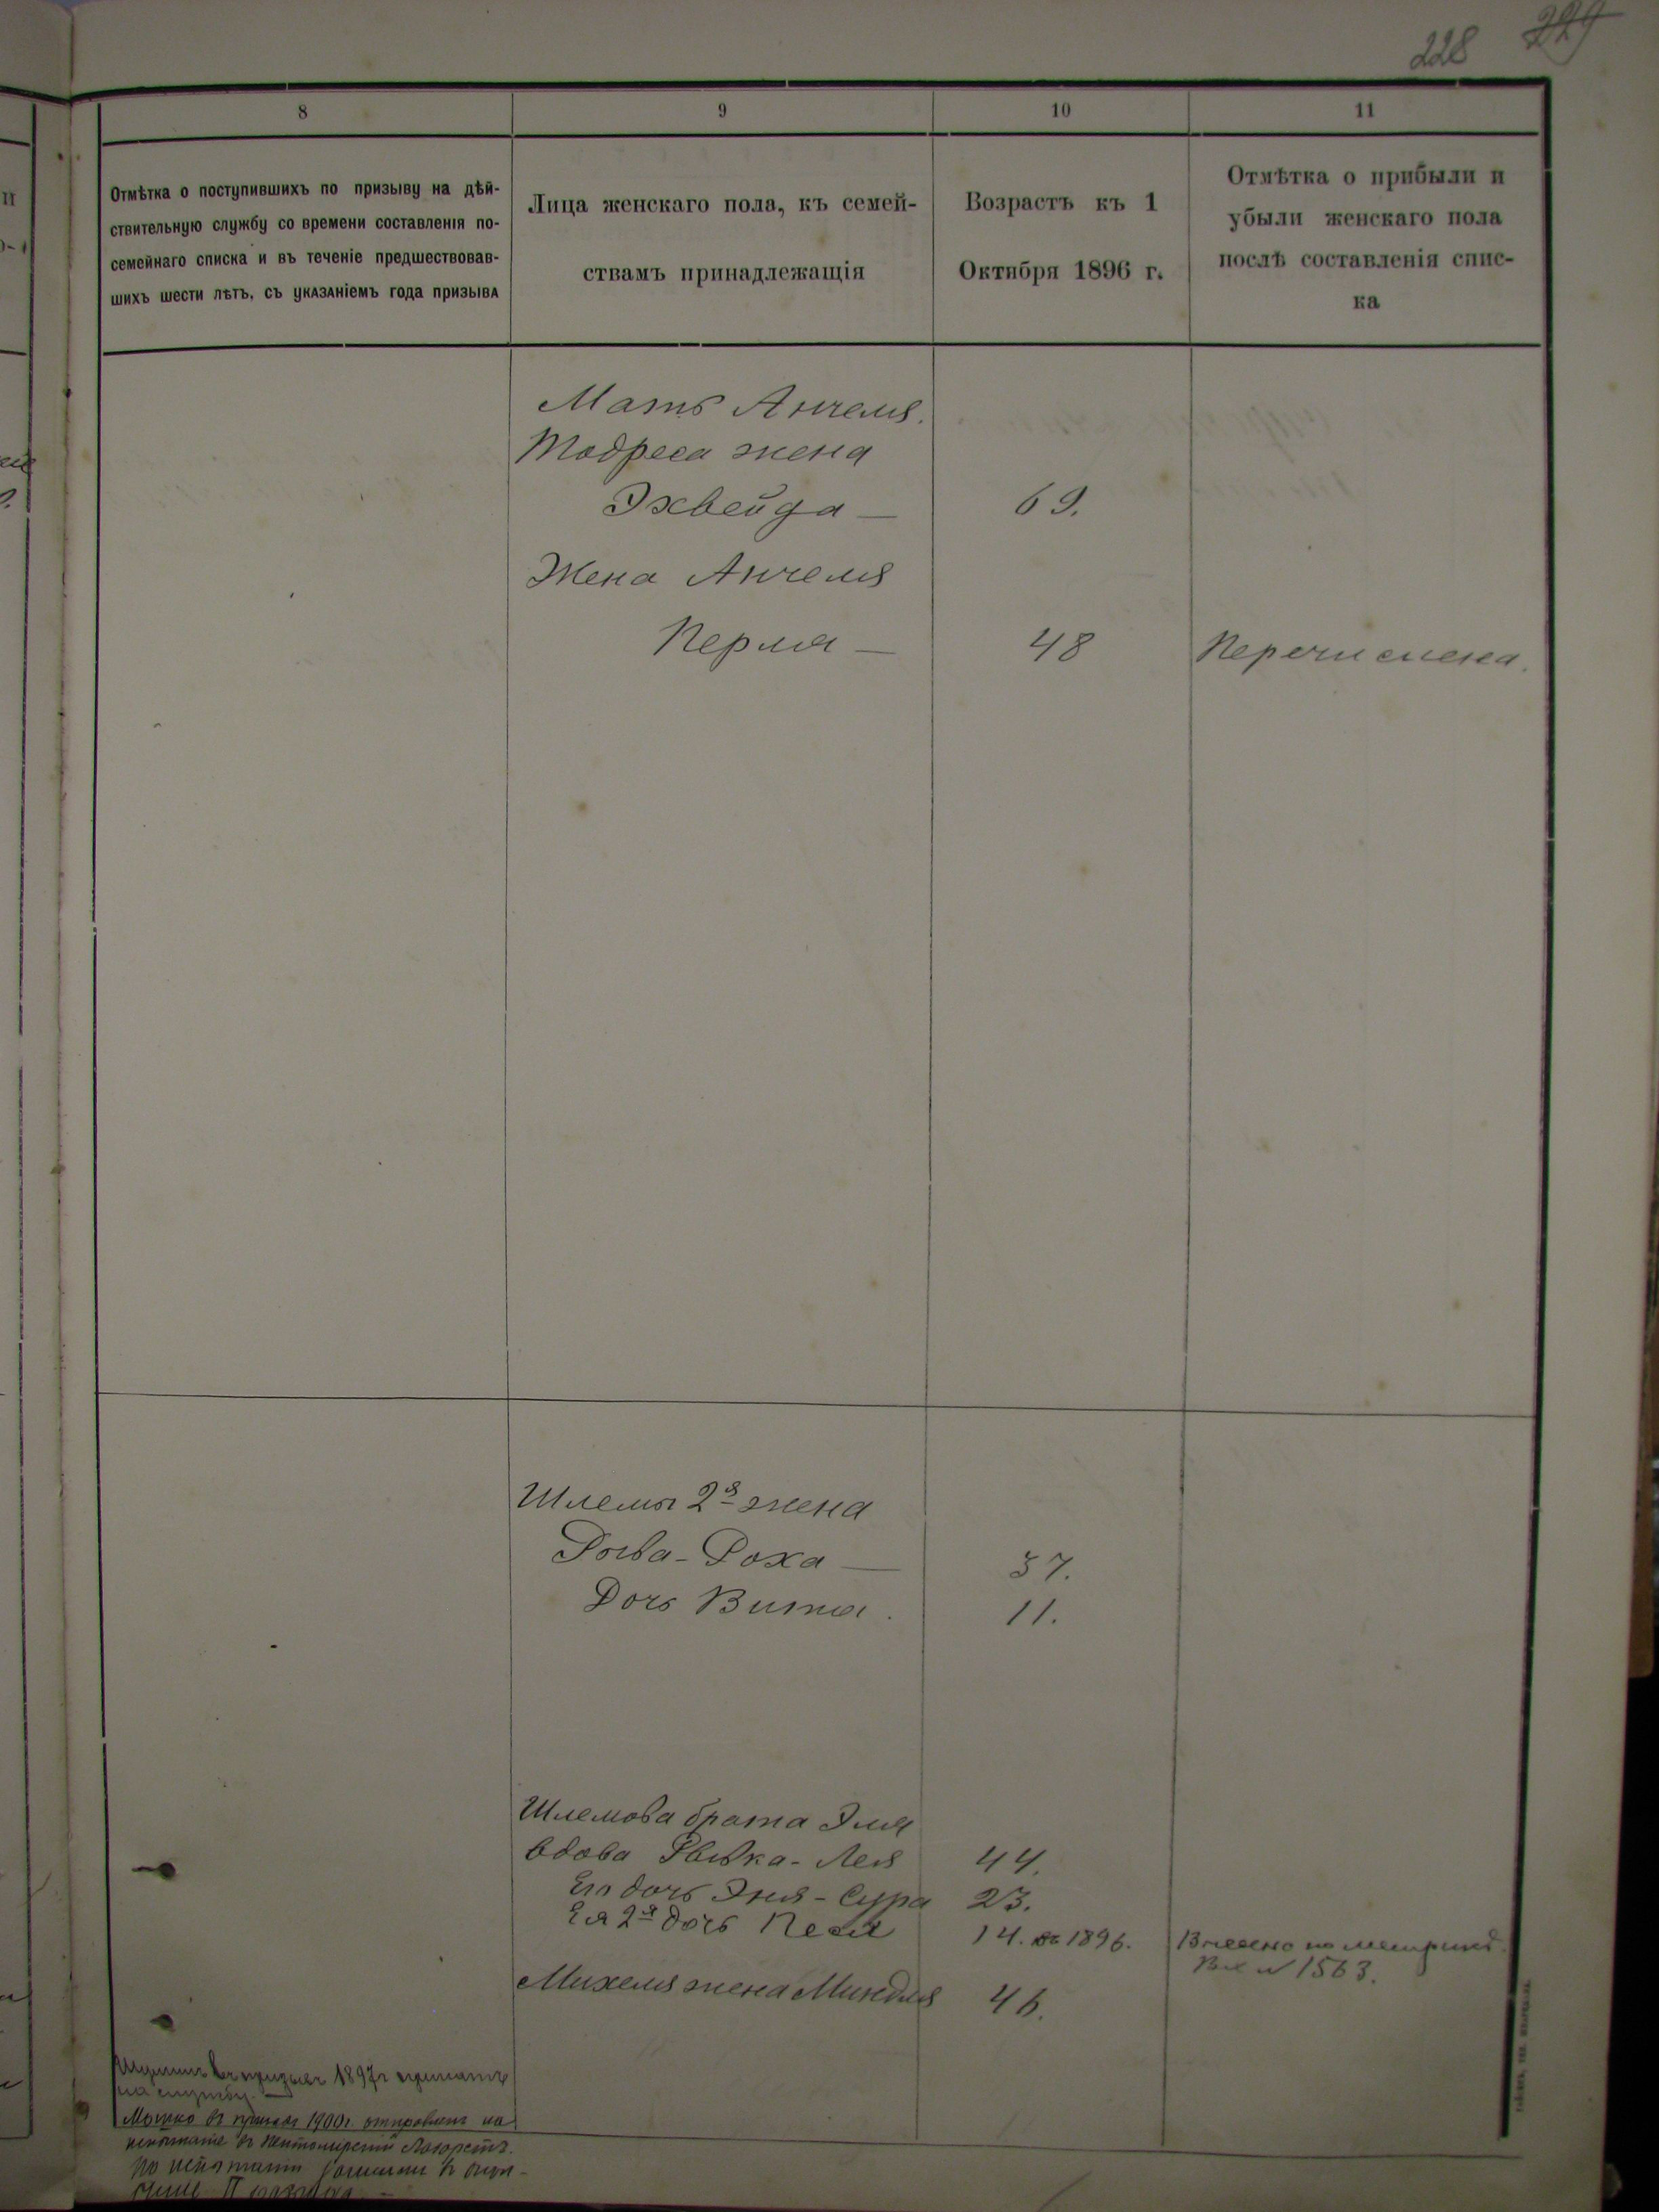 228 229
8
9
10
11
Отмѣтка о поступившихъ по призыву на дѣй-
ствительную службу со времени составленія по-
семейнаго списка и въ теченіе предшествовав-
шихъ шести лѣтъ, съ указаніемъ года призыва
Лица женскаго пола, къ семей-
ствамъ принадлежащія
Возрастъ къ 1
Октября 1896 г.
Отмѣтка о прибыли и
убыли женскаго пола
послѣ составленія спис-
ка
Мать Анчеля.
Тодреса жена
Эхвейда — 69.
Жена Анчеля
Перля — 48 Перечислена.
Шлемы 2я жена
Рыва-Роха — 37.
Дочь Витя. 11.
Шлемова брата Эля
вдова Рывка-Лея 44.
Ея дочь Эня-Сура 23.
Ея 2я дочь Песя 14. въ 1896. Внесена по метрикѣ.
Вх № 1563.
Михеля жена Миндля 46.
въ призывъ 1897г принятъ
на службу.
Мошко въ призывъ 1900г. отправленъ на
испытаніе въ Житомирскій Лазаретъ.
По испытаніи въ опол-
ченіе II разряда. —